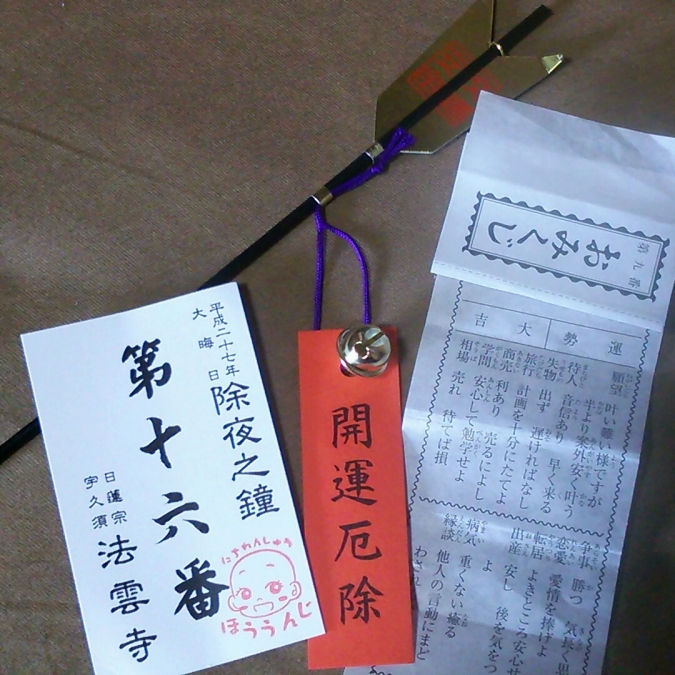 平成二十七年
大晦日
除夜之鐘
第十六番
日蓮宗
宇久須
法雲寺
にちれんしゅう
ほううんじ
開運厄除
第九番
おみくじ
運勢
大吉
願望 叶い難い様ですが
半より案外安く叶う
待人 音信あり 早く来る
失物 出ず 遅ければなし
旅行 計画を十分にたてよ
商売 利あり 売るによし
学問 安心して勉学せよ
相場 売れ 待てば損
争事 勝つ 気長く思
恋愛 愛情を捧げよ
転居 よきところ安心せ
出産 安し 後を気をつ
よ
病気 重くない癒る
縁談 他人の言動にまど
わされ